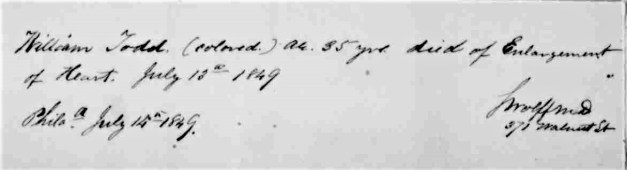 William Todd. (colored.) Ae. 35 yrs died of Enlargement
of Heart. July 13th 1849
Phila.a July 14th 1849.
Wolff MD
571 Walnut St